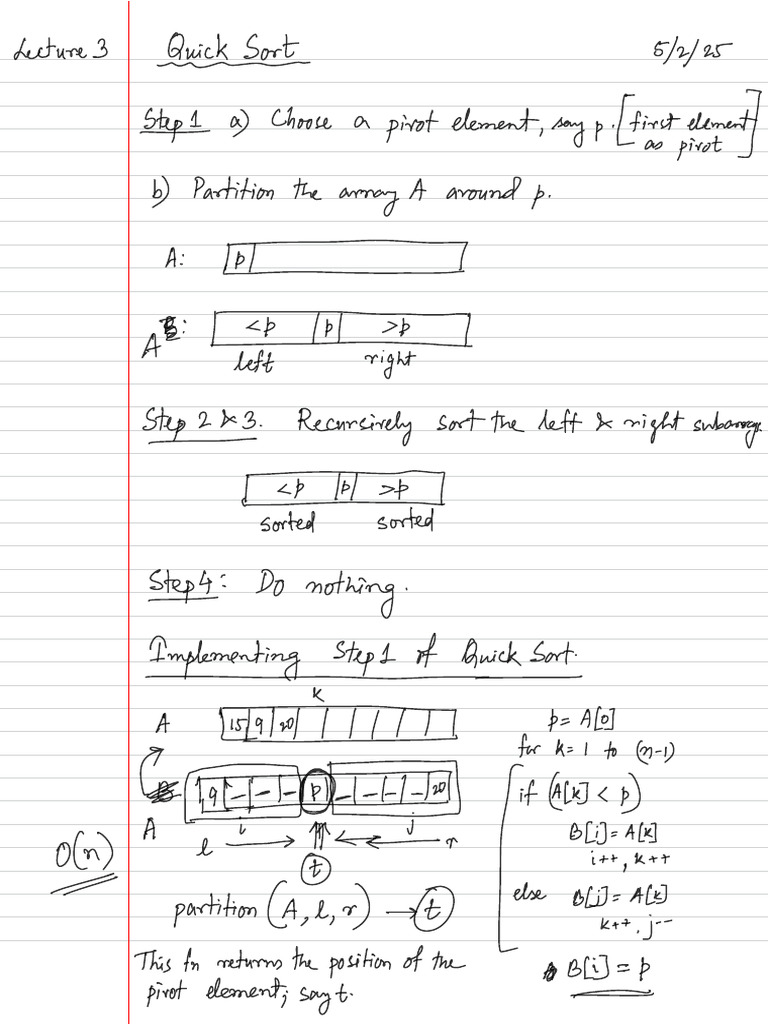 Lecture 3 Quick Sort 5/2/25
Step 1 a) Choose a pivot element, say p. [first element
as pivot]
b) Partition the array A around p.
A: p
A : <p p >p
left right
Step 2 & 3. Recursively sort the left & right subarrays.
<p p >p
sorted sorted
Step 4: Do nothing.
Implementing Step 1 of Quick Sort.
k
A 15 9 20
p = A[0]
for k = 1 to (n-1)
9 – – – p – – – – 20
A i j
l t r
O(n)
if (A[k] < p)
B[i] = A[k]
i++, k++
else B[j] = A[k]
k++, j--
B[i] = p
partition (A, l, r) → t
This fn returns the position of the
pivot element, say t.